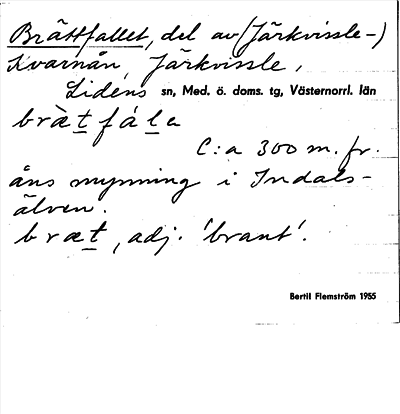 Brättfallet, del av (Järkvissle-)
Kvarnån, Järkvissle,
Lidens sn, Med. ö. doms. tg, Västernorrl. län
bràt̲fál̲a
C:a 300 m. fr.
åns mynning i Indals-
älven.
bræt̲, adj. 'brant'.
Bertil Flemström 1955